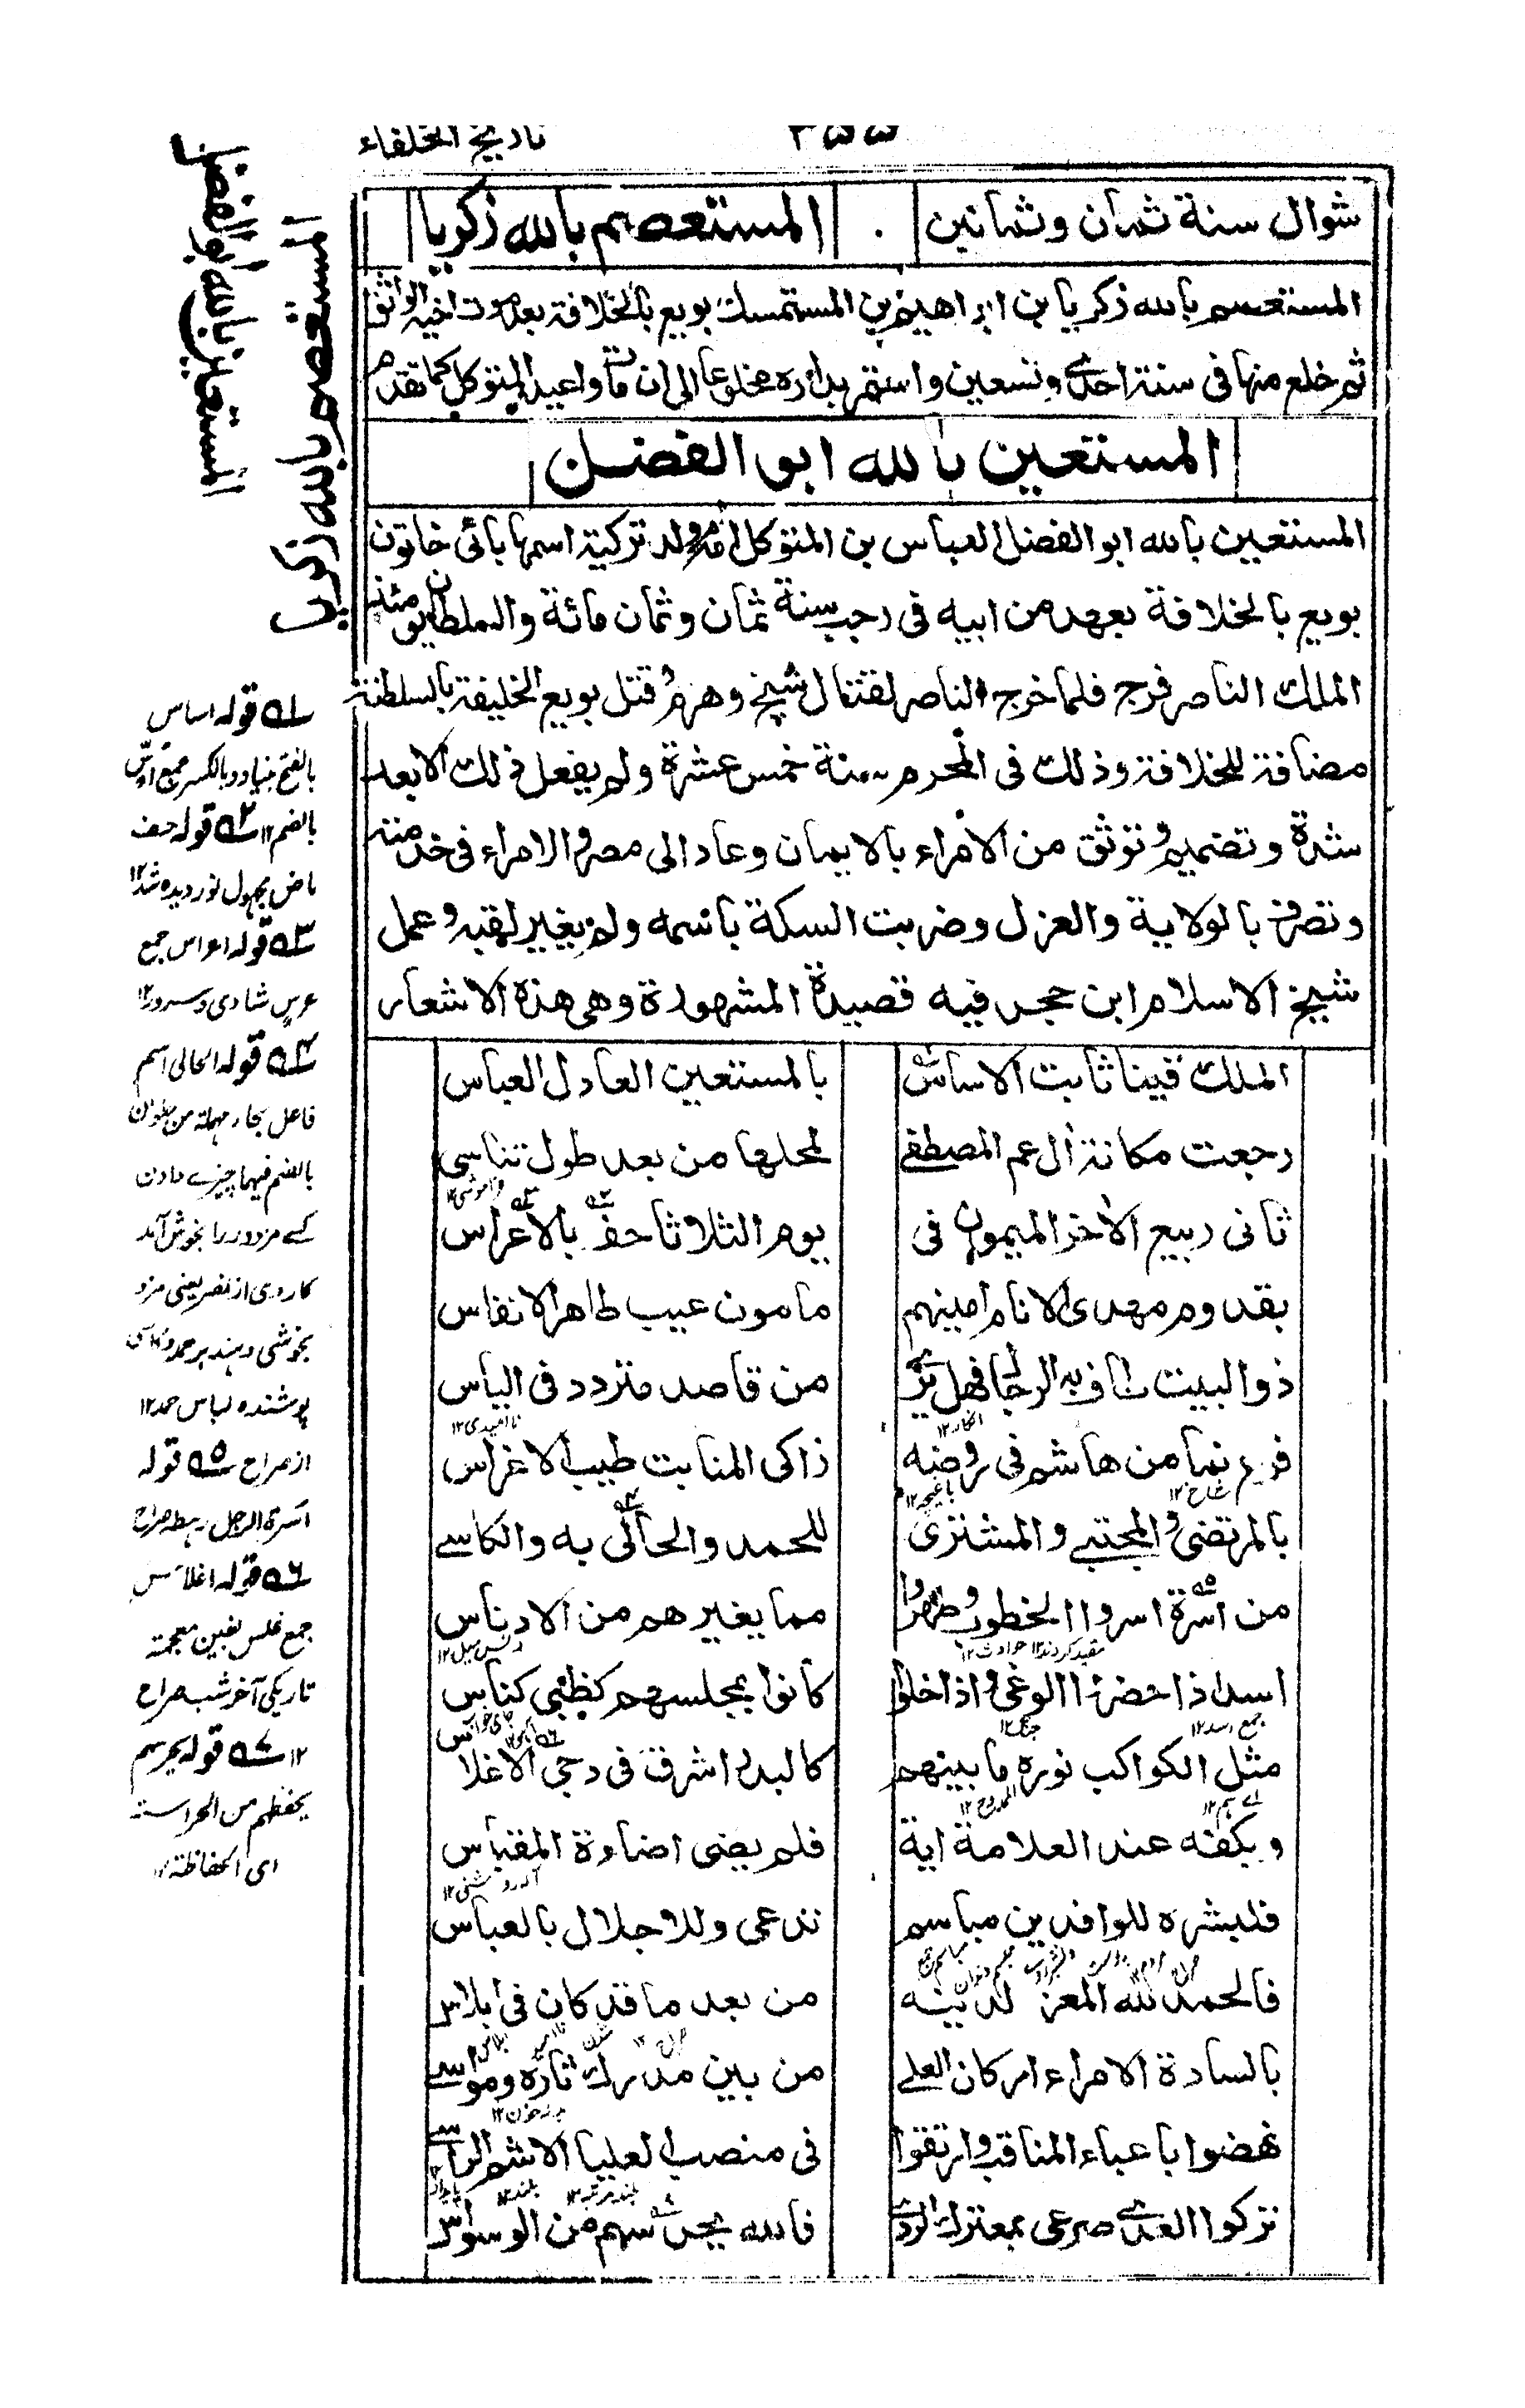 تاريخ الخلفاء
٣٥٥
شوال سنة ثمان وثمانين
المستعصم بالله زكريا
المستعصم بالله زكريا بن ابراهيم بن المستمسك بويع بالخلافة بعد موت اخيه الواثق
ثم خلع منها في سنة احدى وتسعين واستمر بداره مخلوعا الى ان مات واعيد المتوكل كما تقدم
المستعين بالله ابو الفضل
المستعين بالله ابو الفضل العباس بن المتوكل امه ام ولد تركية اسمها بائى خاتون
بويع بالخلافة بعهد من ابيه في رجب سنة ثمان وثمان مائة والسلطان يومئذ
الملك الناصر فرج فلما خرج الناصر لقتال شيخ وهزم وقتل بويع الخليفة بالسلطنة
مضافة للخلافة وذلك في المحرم سنة خمس عشرة ولم يفعل ذلك الا بعد
شدة وتصميم وتوثق من الامراء بالايمان وعاد الى مصر والامراء في خدمته
وتصرف بالولاية والعزل وضربت السكة باسمه ولم يغير لقبه وعمل
شيخ الاسلام ابن حجر فيه قصيدة المشهورة وهي هذه الاشعار
الملك فينا ثابت الاساس بالمستعين العادل العباس
رجعت مكانة ال عم المصطفى لمحلها من بعد طول تناسى
ثانى ربيع الاخر الميمون في يوم الثلاثا حف بالاعراس
بقدوم مهدى الانام امينهم مامون عيب طاهر الانفاس
ذوالبيت طاف به الرجا فهل ترى من قاصد متردد في الياس
فرع نما من هاشم في روضه ذاكى المنابت طيب الاغراس
بالمرتضى والمجتبى والمشترى للحمد والحالى به والكاسى
من اسرة اسروا الخطوب وطهروا مما يغيرهم من الادناس
اسد اذا حضروا الوغى واذا خلوا كانوا بمجلسهم كظبى كناس
مثل الكواكب نوره ما بينهم كالبدر اشرق في دجى الاغلاس
وبكفه عند العلامة اية قلم يضى اضاءة المقباس
فلبشره للوافدين مباسم تدعى وللاجلال بالعباس
فالحمد لله المعز لدينه من بعد ما قد كان في ابلاس
بالسادة الامراء اركان العلى من بين مدرك ثاره ومواسى
نهضوا باعباء المناقب وارتقوا في منصب العليا الاشم الراسى
تركوا العدى صرعى بمعترك الردى فالله يحرسهم من الوسواس
المستعصم بالله زكريا
المستعين بالله ابو الفضل
١ قوله اساس
بالفتح بنياد وبالكسر جمع اس
بالضم ١٢ ٢ قوله حف
ماض مجهول نورديده شد ١٢
٣ قوله اعراس جمع
عرس شادى وسرور ١٢
٤ قوله الحالى اسم
فاعل بحاء مهملة من حلوان
بالضم فيهما چيزے دادن
كسے مزدور را بخوش آمد
كاروى از نصر يعنى مزد
پوشنده لباس حمد ١٢
از صراح ٥ قوله
اسرة الرجل رهطه صراح
٦ قوله اغلاس
جمع غلس بغين معجمة
تاريكى آخر شب صراح
١٢ ٧ قوله يحرسهم
يحفظهم من الحراسة
اى الحفاظة ١٢